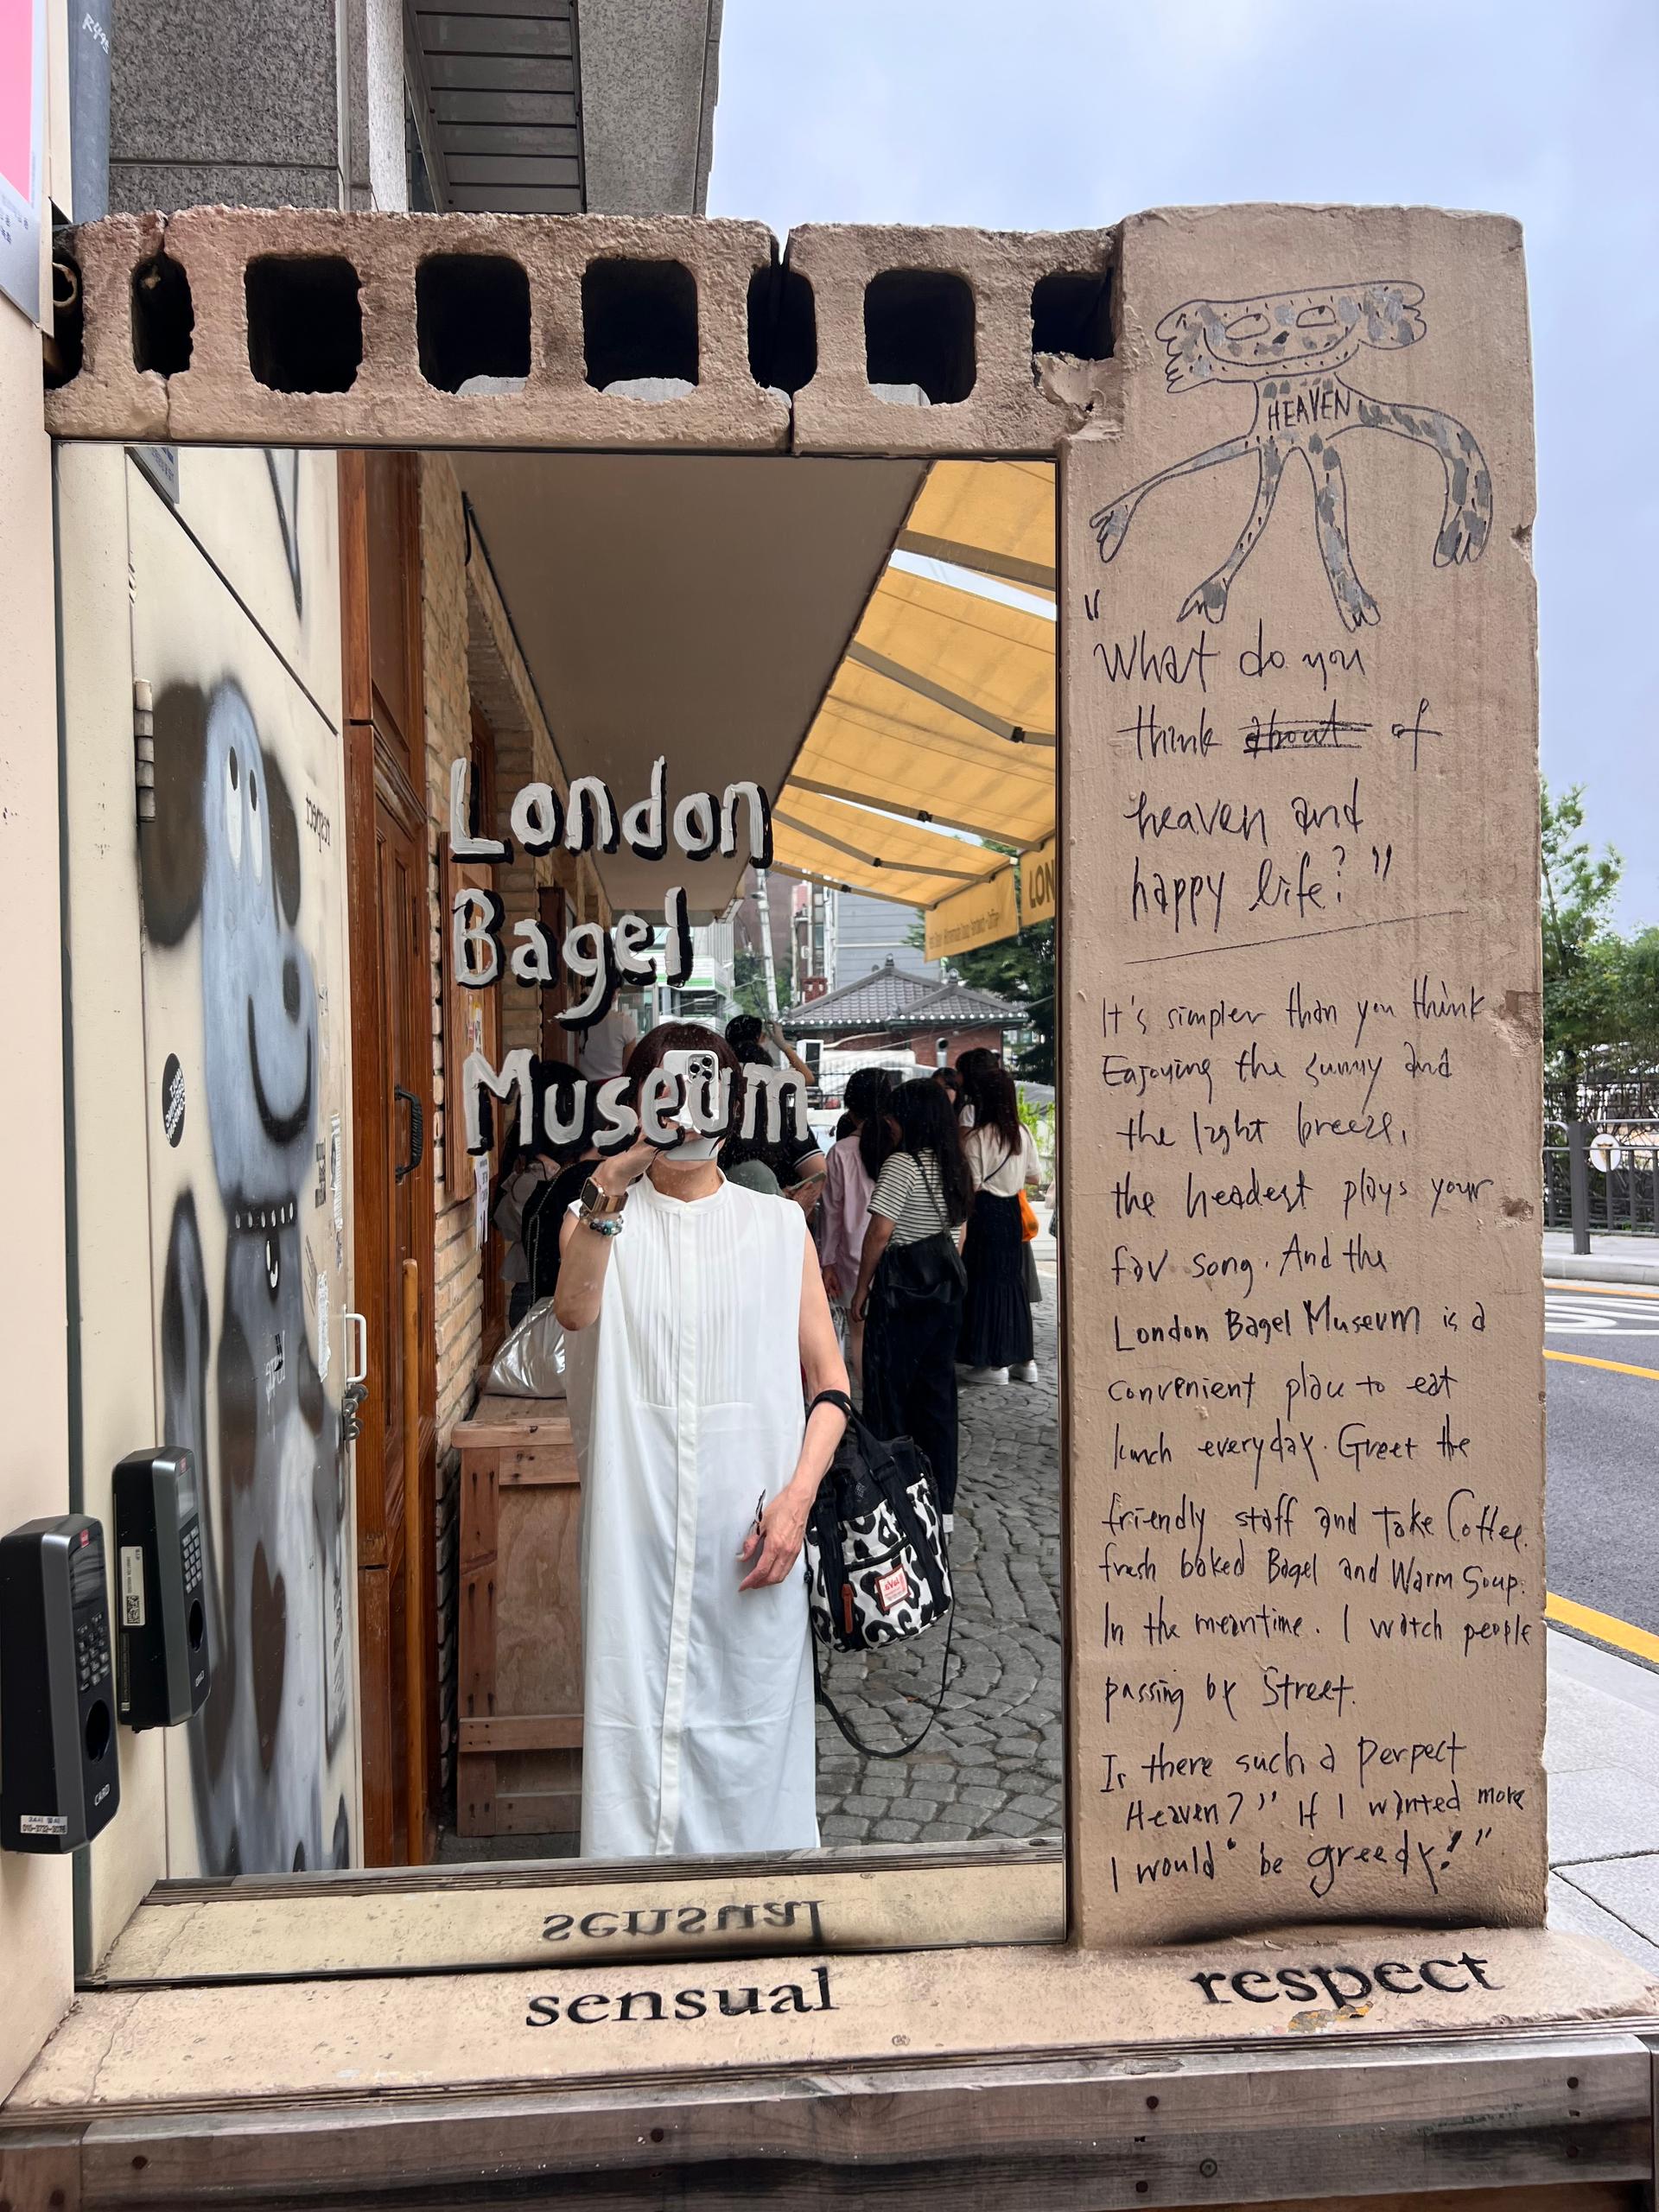 London
Bagel
Museum
LON
HEAVEN
"What do you
think about of
heaven and
happy life?"
It's simpler than you think
Enjoying the sunny and
the light breeze,
the headest plays your
fav song. And the
London Bagel Museum is a
convenient place to eat
lunch everyday. Greet the
friendly staff and take Coffee.
fresh baked Bagel and Warm Soup.
In the meantime. I watch people
passing by Street.
Is there such a perpect
Heaven?" If I wanted more
I would be greedy!"
respect
sensual
sensual
respect
CARD